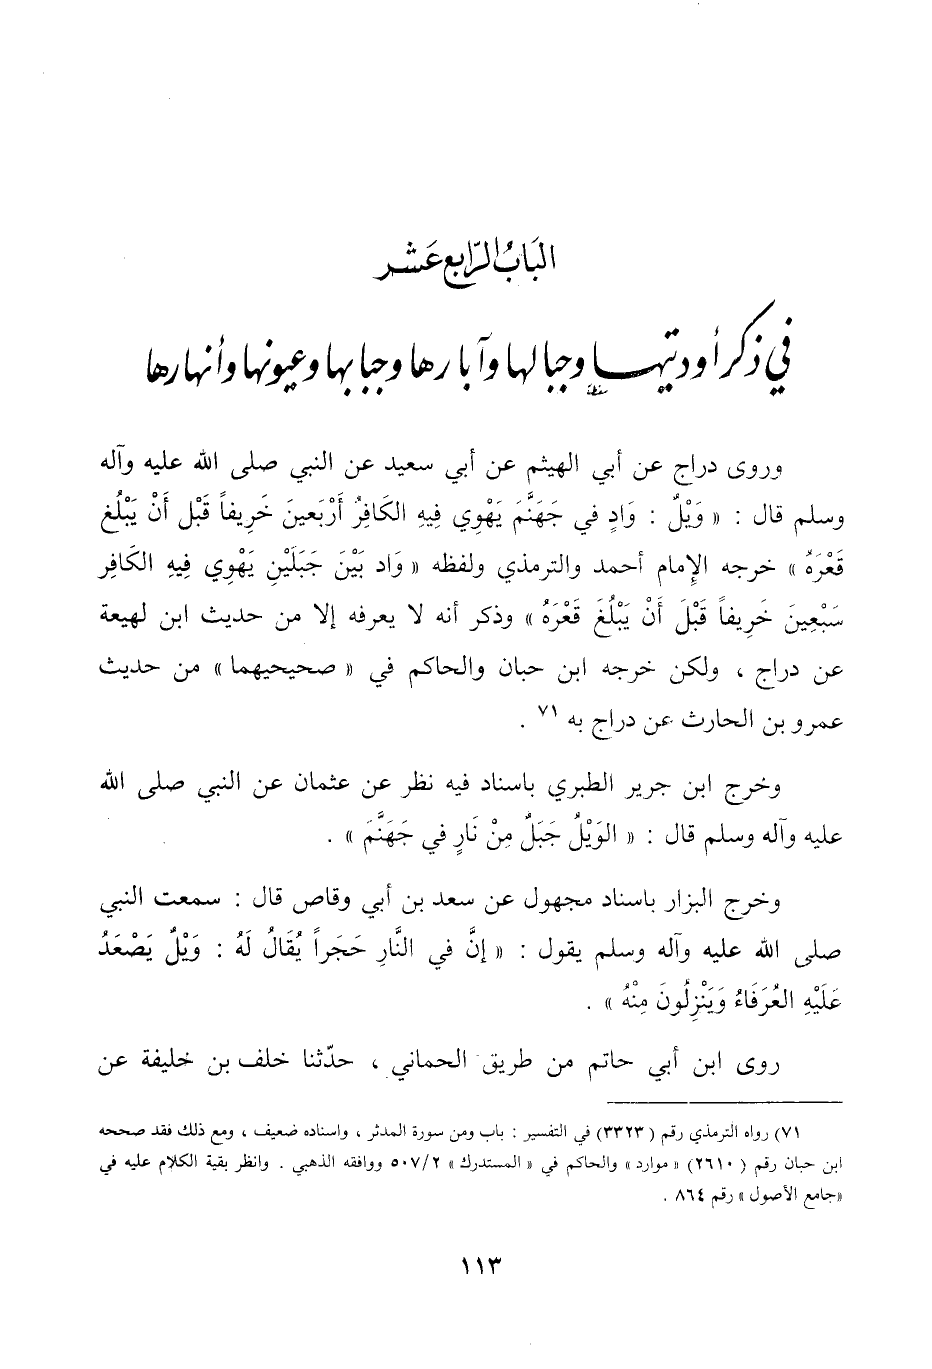 الباب الرابع عشر
في ذكر أوديتها وجبالها وآبارها وجبابها وعيونها وأنهارها
وروى دراج عن أبي الهيثم عن أبي سعيد عن النبي صلى الله عليه وآله
وسلم قال : « وَيْلٌ : وَادٍ في جَهَنَّمَ يَهْوِي فِيهِ الكَافِرُ أَرْبَعينَ خَرِيفاً قَبْل أَنْ يَبْلُغ
قَعْرَهُ » خرجه الإمام أحمد والترمذي ولفظه « وَاد بَيْنَ جَبَلَيْنِ يَهْوِي فِيهِ الكَافِر
سَبْعِينَ خَرِيفاً قَبْلَ أَنْ يَبْلُغَ قَعْرَهُ » وذكر أنه لا يعرفه إلا من حديث ابن لهيعة
عن دراج ، ولكن خرجه ابن حبان والحاكم في « صحيحيهما » من حديث
عمرو بن الحارث عن دراج به ٧١ .
وخرج ابن جرير الطبري باسناد فيه نظر عن عثمان عن النبي صلى الله
عليه وآله وسلم قال : « الوَيْلُ جَبَلٌ مِنْ نَارٍ في جَهَنَّمَ » .
وخرج البزار باسناد مجهول عن سعد بن أبي وقاص قال : سمعت النبي
صلى الله عليه وآله وسلم يقول : « إِنَّ في النَّارِ حَجَراً يُقَالُ لَهُ : وَيْلٌ يَصْعَدُ
عَلَيْهِ العُرَفَاءُ وَيَنْزِلُونَ مِنْهُ » .
روى ابن أبي حاتم من طريق الحماني ، حدّثنا خلف بن خليفة عن
٧١) رواه الترمذي رقم (٣٣٢٣) في التفسير : باب ومن سورة المدثر ، واسناده ضعيف ، ومع ذلك فقد صححه
ابن حبان رقم (٢٦١٠) « موارد» والحاكم في « المستدرك » ٥٠٧/٢ ووافقه الذهبي . وانظر بقية الكلام عليه في
«جامع الأصول » رقم ٨٦٤ .
١١٣